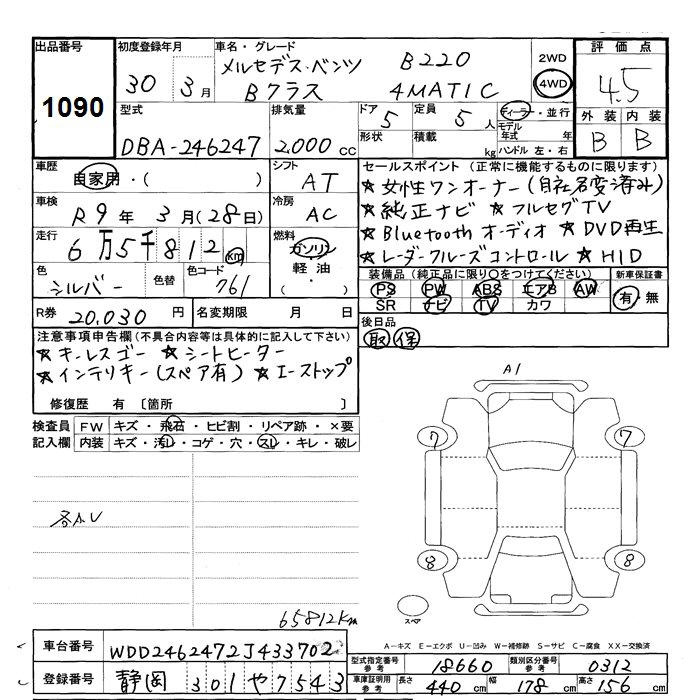 出品番号 1090
初度登録年月 30年 3月
車名・グレード メルセデス・ベンツ B220
Bクラス 4MATIC
2WD
4WD
評価点
4.5
外装 内装
B B
型式
DBA-246247
排気量
2,000 cc
ドア 5
定員 5人
ディーラー・並行
形状
積載 kg
モデル年式 年
ハンドル 左・右
車歴 自家用・( )
シフト AT
車検 R9年 3月(28日)
冷房 AC
走行 6万5千812 km
燃料 ガソリン
軽油
色 シルバー
色替
色コード 761
R券 20,030円
名変期限 月 日
セールスポイント(正常に機能するものに限ります)
★女性ワンオーナー(自社名変済み)
★純正ナビ ★フルセグTV
★Bluetoothオーディオ ★DVD再生
★レーダークルーズコントロール ★HID
装備品(純正品に限り○をつけてください)
PS PW ABS エアB AW
SR ナビ TV カワ
新車保証書
有・無
後日品
取 保
注意事項申告欄(不具合内容等は具体的に記入して下さい)
★キーレスゴー ★シートヒーター
★インテリキー(スペア有) ★エーストップ
修復歴 有〔箇所 〕
検査員記入欄
FW キズ・飛石・ヒビ割・リペア跡・×要
内装 キズ・汚レ・コゲ・穴・スレ・キレ・破レ
各AU
65812Km
A1
7
7
8
8
スペア
A−キズ E−エクボ U−凹み W−補修跡 S−サビ C−腐食 XX−交換済
車台番号 WDD2462472J433702
登録番号 静岡 301 や 7543
型式指定番号参考 18660
類別区分番号参考 0312
車庫証明用参考 長さ 440cm 幅 178cm 高さ 156cm